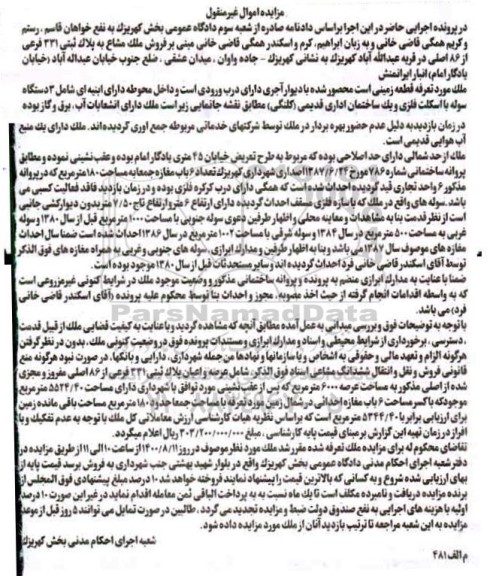 مزایده اموال غیرمنقول
در پرونده اجرایی حاضر در این اجرا براساس دادنامه صادره از شعبه سوم دادگاه عمومی بخش کهریزک به نفع خواهان قاسم ، رستم
و کریم همگی قاضی خانی و به زیان ابراهیم، کرم و اسکندر همگی قاضی خانی مبنی بر فروش ملک مشاع به پلاک ثبتی ۳۳۱ فرعی
از ۸۶ اصلی در قریه عبدالله آباد کهریزک به نشانی کهریزک - جاده واوان ، میدان عشقی ، ضلع جنوب خیابان عبداله آباد (خیابان
یادگار امام) انبار ایرانمنش
ملک مورد تعرفه قطعه زمینی است محصور شده با دیوار آجری دارای درب ورودی است و داخل محوطه دارای ابنیه ای شامل ۳ دستگاه
سوله با اسکلت فلزی و یک ساختمان اداری قدیمی (کلنگی) مطابق نقشه جانمایی زیر است ملک دارای انشعابات آب . برق و گاز بوده
در زمان بازدید به دلیل عدم حضور بهره بردار در ملک توسط شرکتهای خدماتی مربوطه جمع آوری گردیده‌اند. ملک دارای یک منبع
آب هوایی قدیمی است.
ملک از حد شمالی دارای حد اصلاحی بوده که مربوط به طرح تعریض خیابان ۴۵ متری یادگار امام بوده و عقب نشینی نموده و مطابق
پروانه ساختمانی شماره ۸۹۶ مورخ ۱۳۸۷/۰۶/۰۲ اصداری شهرداری کهریزک تعداد ۶ باب مغازه جمعا به مساحت ۱۸۰ مترمربع که در پروانه
مذکور ۶ واحد تجاری قید گردیده احداث شده است که همگی دارای درب کرکره فلزی بوده و در زمان بازدید فاقد فعالیت کسبی می
باشد .سوله های واقع در ملک که با سازه فلزی مسقف احداث گردیده دارای ارتفاع ۶ متر و ارتفاع تاج ۷/۵۰ متر بدون دیوارکشی جانبی
است از نظر قدمت بنا به مشاهدات و معاینه محلی و اظهار طرفین دعوی سوله جنوبی با مساحت ۱۰۰۰ مترمربع قبل از سال ۱۳۸۰ و سوله
غربی به مساحت ۵۰۰ مترمربع در سال ۱۳۸۴ و سوله شرقی با مساحت ۱۰۰۲ مترمربع در سال ۱۳۸۶ احداث شده است ضمنا سال احداث
مغازه های موصوف سال ۱۳۸۷ می باشد و بنا به اظهار طرفین و مدارک ابرازی، سوله های جنوبی و غربی به همراه مغازه های فوق الذکر
توسط آقای اسکندر قاضی خانی فرد احداث گردیده اند و سایر مستحدثات قبل از سال ۱۳۸۰ موجود بوده است.
ضمنا با عنایت به مدارک ابرازی منضم به پرونده و پروانه ساختمانی مذکور و وضعیت موجود ملک در شرایط کنونی غیرمزروعی است
که به واسطه اقدامات انجام گرفته از حیث اخذ مصوبه، مجوز و احداث بنا توسط محکوم علیه پرونده (آقای اسکندر قاضی خانی
فرد) می باشد.
با توجه به توضیحات فوق و بررسی میدانی به عمل آمده مطابق آنچه که مشاهده گردید و با عنایت به کیفیت قضایی ملک از قبیل قدمت
، دسترسی ، برخورداری از شرایط محیطی و اسناد و مدارک ابرازی و مستندات پرونده فوق در وضعیت کنونی ملک، بدون در نظر گرفتن
هرگونه الزام و تعهد مالی و حقوقی به اشخاص و یا سازمانها و نهادها من جمله شهرداری، دارایی و بانکها، در صورت نبود هرگونه منع
قانونی فروش و نقل و انتقال ششدانگ مشاعی اسناد فوق الذکر، شامل عرصه و اعیان پلاک ثبتی ۳۳۱ فرعی از ۸۶ اصلی مفروز و مجزی
شده از اصلی مذکور به مساحت عرصه ۶۰۰۰ مترمربع که پس از عقب نشینی مورد توافق با شهرداری دارای مساحت ۵۵۲۴/۴۰ مترمربع
موجود که با کسر مساحت ۶ باب مغازه احداثی در شمال زمین مورد تعرفه با مساحت جمعا حدود ۱۸۰ مترمربع مساحت باقی مانده زمین
برای ارزیابی برابر با ۵۳۴۴/۴۰ مترمربع است که براساس نظریه هیات کارشناسی ارزش معاملاتی کل ملک با توجه به عدم تفکیک و یا
افراز در زمان تهیه این گزارش بر مبنای قیمت پایه کارشناسی ، مبلغ ۳۰۳/۲۰۰/۰۰۰/۰۰۰ ریال اعلام میگردد.
تقاضای محکوم له برای مزایده ملک تعرفه شده مقرر شد ملک مورد نظر موصوف در روز ۱۴۰۰/۸/۱۱ از ساعت ۱۰ الی ۱۱ از طریق مزایده در
دفتر شعبه اجرای احکام مدنی دادگاه عمومی بخش کهریزک واقع در بلوار شهید بهشتی جنب شهرداری به فروش برسد قیمت پایه از
بهای ارزیابی شده شروع و به کسانی که بالاترین قیمت را پیشنهاد نمایند فروخته خواهد شد ۱۰ درصد مبلغ پیشنهادی فوق المجلس از
برنده مزایده دریافت و نامبرده مکلف است تا یک ماه نسبت به پرداخت الباقی ثمن معامله اقدام نماید در غیر این صورت ۱۰ درصد
اولیه با هزینه های اجرایی به نفع صندوق دولت ضبط و مزایده تجدید می گردد . طالبین در صورت تمایل می توانند ۵ روز قبل از موعد
مزایده به این شعبه مراجعه تا ترتیب بازدید آنان از ملک مورد مزایده داده شود.
شعبه اجرای احکام مدنی بخش کهریزک
م الف ۴۸۱
ParsNamadData